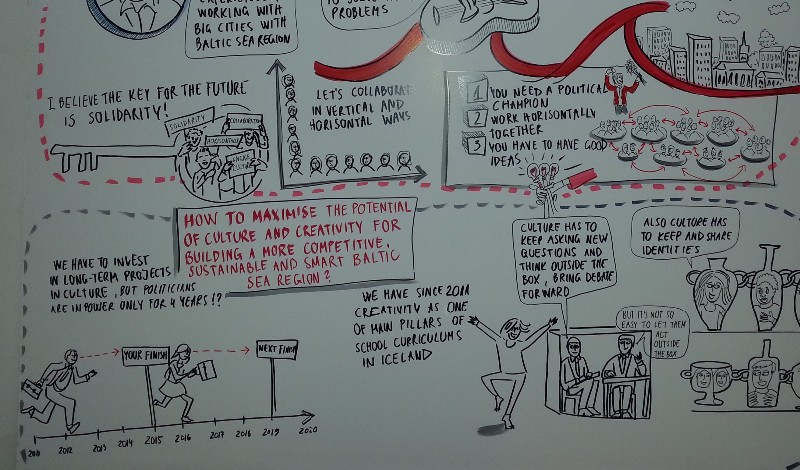 WORKING WITH
BIG CITIES WITH
BALTIC SEA REGION
PROBLEMS
I BELIEVE THE KEY FOR THE FUTURE
IS SOLIDARITY!
SOLIDARITY
LET'S COLLABORAT
IN VERTICAL AND
HORISONTAL WAYS
1 YOU NEED A POLITICAL
CHAMPION
2 WORK HORISONTALLY
TOGETHER
3 YOU HAVE TO HAVE GOOD
IDEAS
HOW TO MAXIMISE THE POTENTIAL
OF CULTURE AND CREATIVITY FOR
BUILDING A MORE COMPETITIVE,
SUSTAINABLE AND SMART BALTIC
SEA REGION?
WE HAVE TO INVEST
IN LONG-TERM PROJECTS
IN CULTURE, BUT POLITICIANS
ARE IN POWER ONLY FOR 4 YEARS!?
YOUR FINISH
NEXT FINISH
2011 2012 2013 2014 2015 2016 2017 2018 2019 2020
WE HAVE SINCE 2011
CREATIVITY AS ONE
OF MAIN PILLARS OF
SCHOOL CURRICULUMS
IN ICELAND
CULTURE HAS TO
KEEP ASKING NEW
QUESTIONS AND
THINK OUTSIDE THE
BOX, BRING DEBATE
FORWARD
BUT IT'S NOT SO
EASY TO LET THEM
ACT
OUTSIDE
THE BOX
ALSO CULTURE HAS
TO KEEP AND SHARE
IDENTITIES